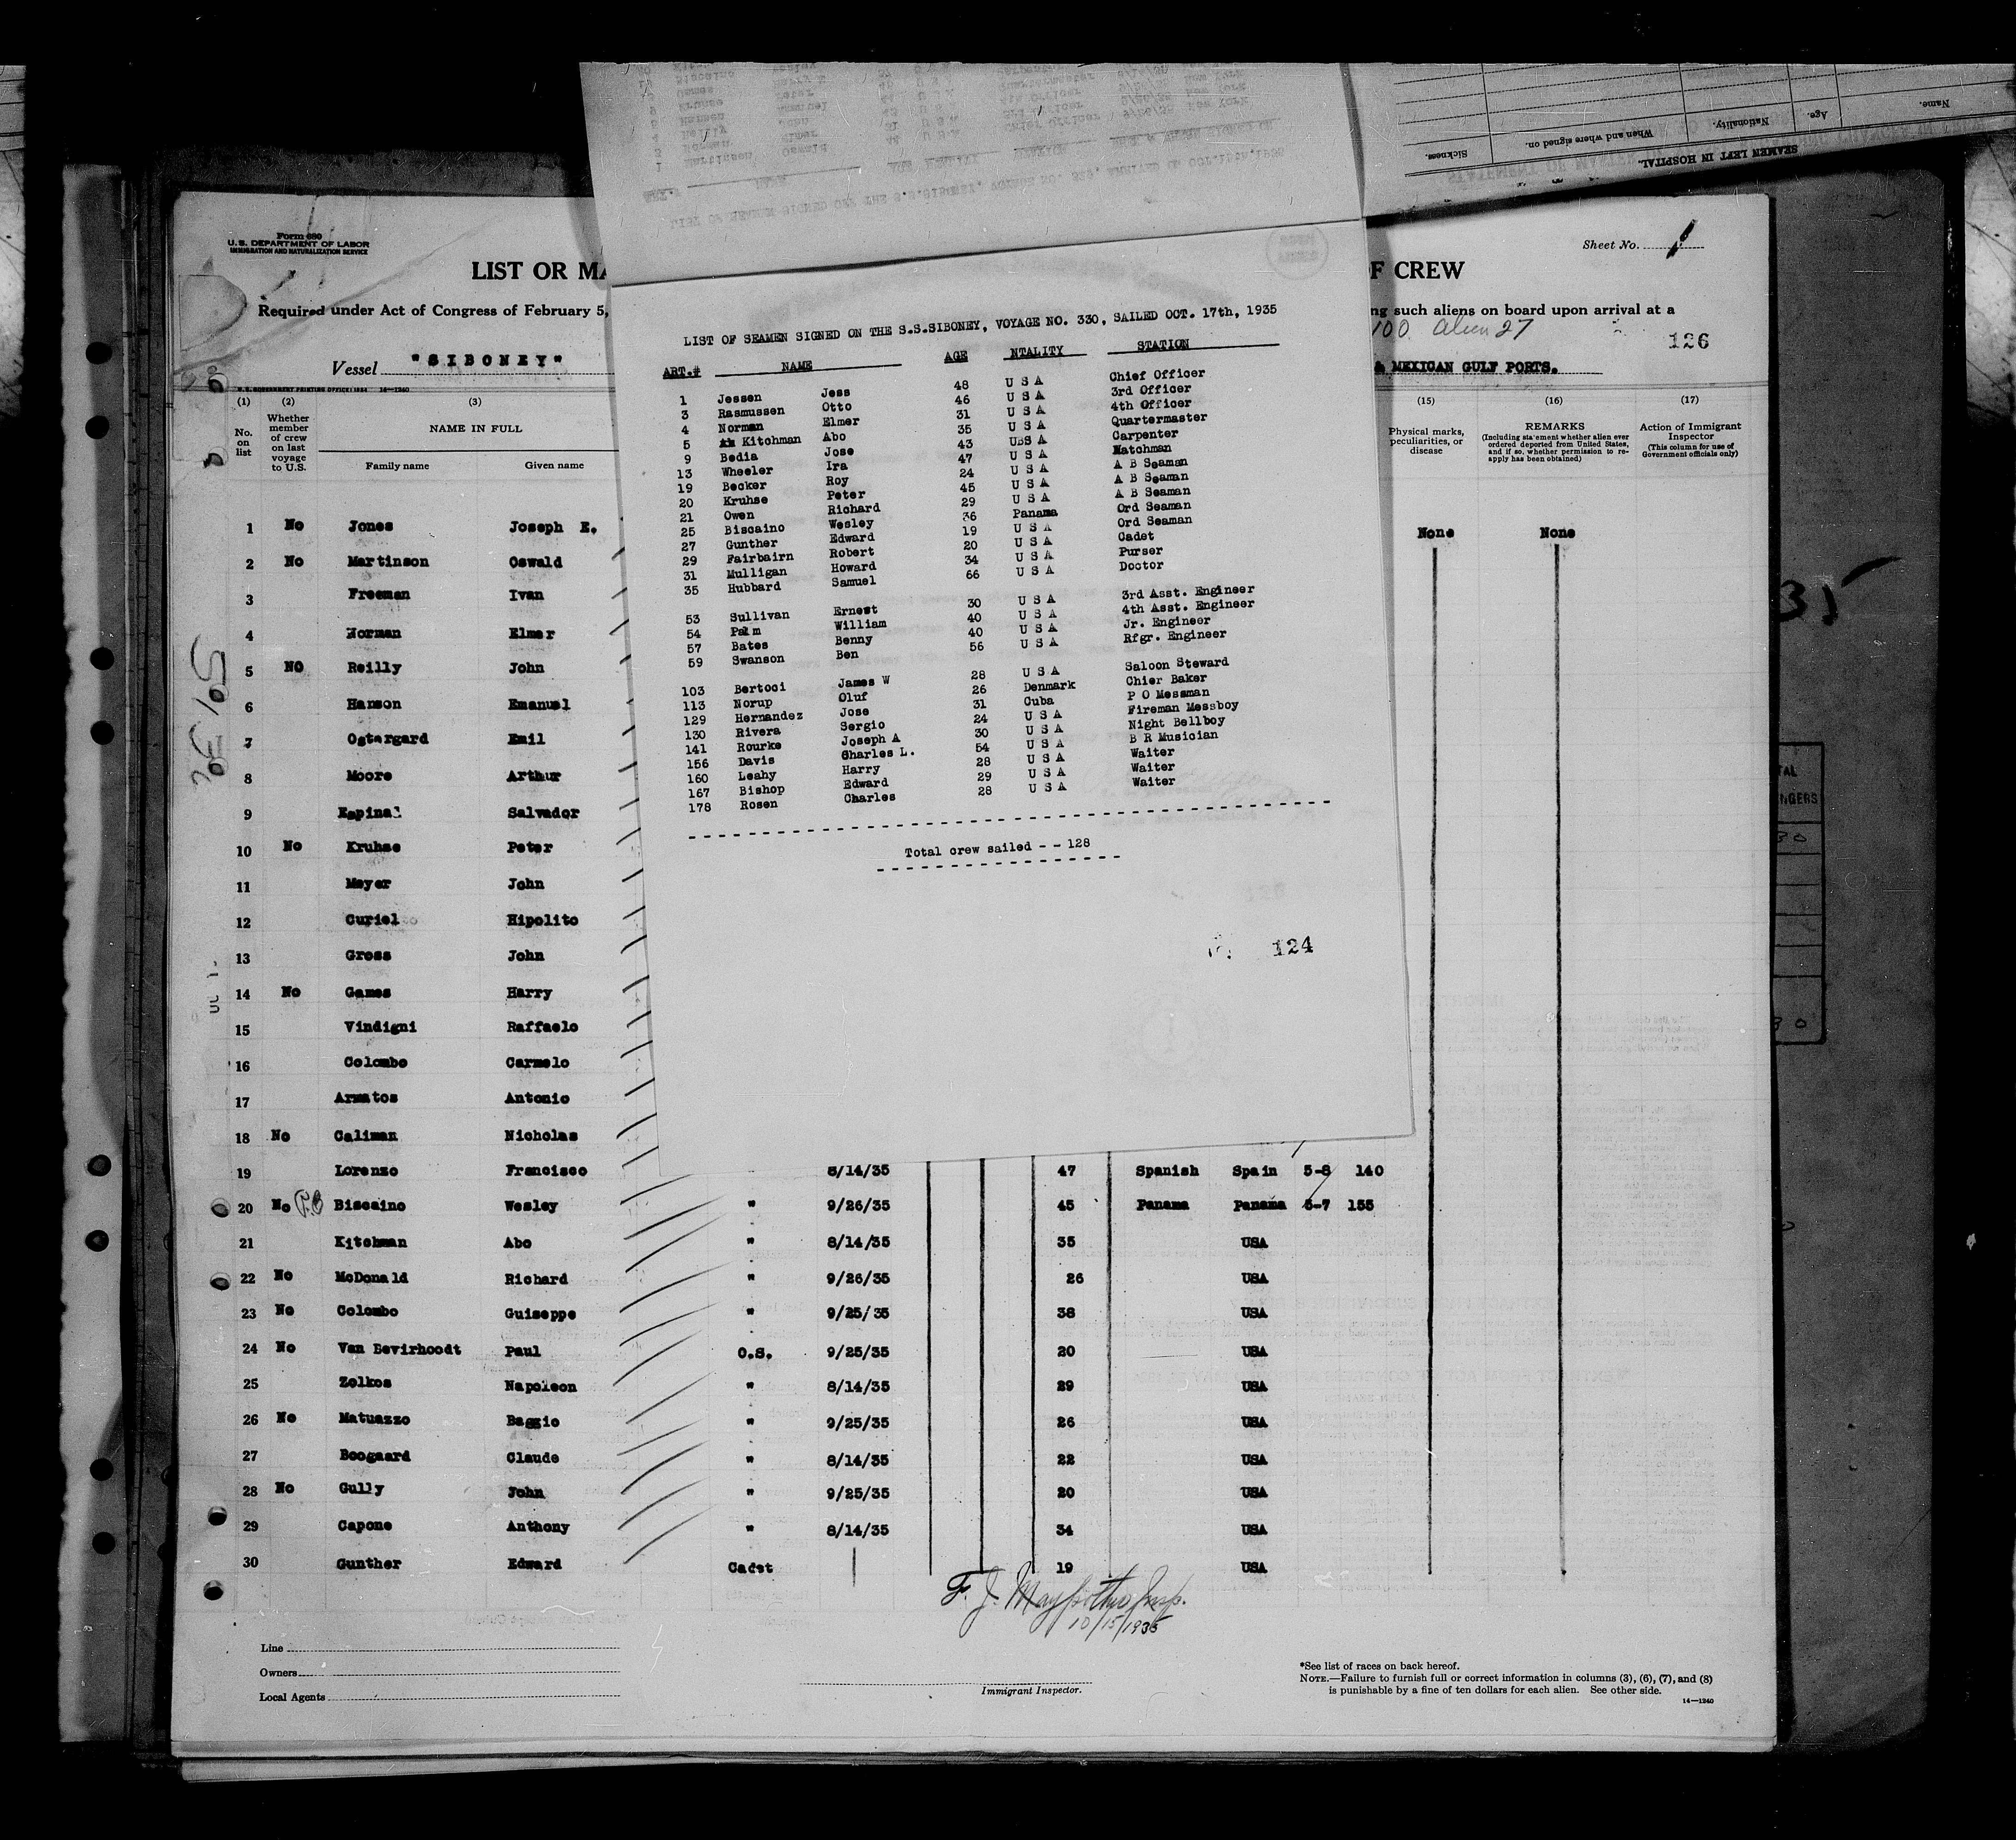 Form 680
U.S. DEPARTMENT OF LABOR
IMMIGRATION AND NATURALIZATION SERVICE
Sheet No. 1
LIST OR MA
OF CREW
Required under Act of Congress of February 5,
ng such aliens on board upon arrival at a
100 alien 27
126
Vessel "SIBONEY"
& MEXICAN GULF PORTS.
U.S. GOVERNMENT PRINTING OFFICE: 1934 14—1240
SEAMEN LEFT IN HOSPITAL.
Name. Age. Nationality. When and where signed on. Sickness.
LIST OF SEAMEN SIGNED ON THE S.S.SIBONEY, VOYAGE NO. 330, SAILED OCT. 17th, 1935
ART.# NAME AGE NTALITY STATION
1 Jessen Jess 48 U S A Chief Officer
3 Rasmussen Otto 46 U S A 3rd Officer
4 Norman Elmer 31 U S A 4th Officer
5 Kitchman Abo 35 U S A Quartermaster
9 Bedia Jose 43 UBS A Carpenter
13 Wheeler Ira 47 U S A Watchman
19 Becker Roy 24 U S A A B Seaman
20 Kruhse Peter 45 U S A A B Seaman
21 Owen Richard 29 U S A A B Seaman
25 Biscaino Wesley 36 Panama Ord Seaman
27 Gunther Edward 19 U S A Ord Seaman
29 Fairbairn Robert 20 U S A Cadet
31 Mulligan Howard 34 U S A Purser
35 Hubbard Samuel 66 U S A Doctor
53 Sullivan Ernest 30 U S A 3rd Asst. Engineer
54 Palm William 40 U S A 4th Asst. Engineer
57 Bates Benny 40 U S A Jr. Engineer
59 Swanson Ben 56 U S A Rfgr. Engineer
103 Bertoci James W 28 U S A Saloon Steward
113 Norup Oluf 26 Denmark Chier Baker
129 Hernandez Jose 31 Cuba P O Messman
130 Rivera Sergio 24 U S A Fireman Messboy
141 Rourke Joseph A 30 U S A Night Bellboy
156 Davis Charles L. 54 U S A B R Musician
160 Leahy Harry 28 U S A Waiter
167 Bishop Edward 29 U S A Waiter
178 Rosen Charles 28 U S A Waiter
Total crew sailed - - 128
124
(1) (2) (3) (15) (16) (17)
No. on list
Whether member of crew on last voyage to U.S.
NAME IN FULL
Family name Given name
Physical marks, peculiarities, or disease
REMARKS
(Including statement whether alien ever ordered deported from United States, and if so, whether permission to re-apply has been obtained)
Action of Immigrant Inspector
(This column for use of Government officials only)
1 No Jones Joseph E. None None
2 No Martinson Oswald
3 Freeman Ivan
4 Norman Elmer
5 NO Reilly John
6 Hanson Emanuel
7 Ostergard Emil
8 Moore Arthur
9 Espinal Salvador
10 No Kruhse Peter
11 Meyer John
12 Curiel Hipolito
13 Gross John
14 No Games Harry
15 Vindigni Raffaelo
16 Colombo Carmelo
17 Armatos Antonio
18 No Caliman Nicholas
19 Lorenzo Francisco 8/14/35 47 Spanish Spain 5-8 140
20 No Biscaino Wesley " 9/26/35 45 Panama Panama 5-7 155
21 Kitchman Abo " 8/14/35 35 USA
22 No McDonald Richard " 9/26/35 26 USA
23 No Colombo Guiseppe " 9/25/35 38 USA
24 No Van Bevirhoodt Paul O.S. 9/25/35 20 USA
25 Zelkos Napoleon " 8/14/35 29 USA
26 No Matuazzo Baggio " 9/25/35 26 USA
27 Boogaard Claude " 8/14/35 22 USA
28 No Gully John " 9/25/35 20 USA
29 Capone Anthony " 8/14/35 34 USA
30 Gunther Edward Cadet 19 USA
10/15/1935
Line
Owners
Local Agents
Immigrant Inspector.
*See list of races on back hereof.
NOTE.—Failure to furnish full or correct information in columns (3), (6), (7), and (8)
is punishable by a fine of ten dollars for each alien. See other side.
14—1240